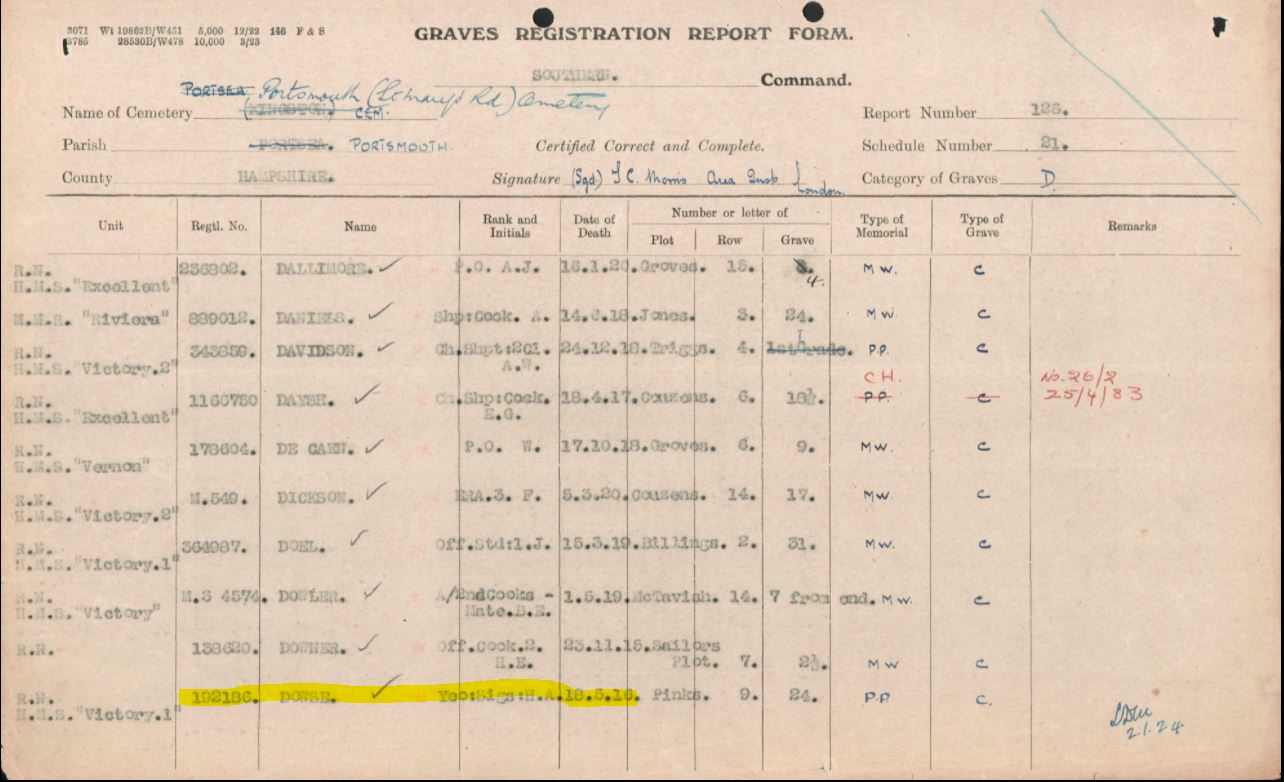 3071 Wt 19862B/W451 5,000 12/22 146 F & S
3785 28530B/W478 10,000 3/23
GRAVES REGISTRATION REPORT FORM.
SOUTHERN. Command.
PORTSEA Portsmouth (St Mary's Rd) Cemetery
Name of Cemetery (KINGSTON) CEM. Report Number 126.
Parish PORTSEA. PORTSMOUTH. Certified Correct and Complete. Schedule Number 21.
County HAMPSHIRE. Signature (Sgd) Morris Area London Category of Graves D.
Unit Regtl. No. Name Rank and Initials Date of Death Number or letter of Plot Row Grave Type of Memorial Type of Grave Remarks
R.N. 236802. DALLIMORE. ✓ P.O. A.J. 16.1.20. Groves. 15. 4. M W. C
H.M.S. "Excellent"
M.M.R. "Riviera" 889012. DANIELS. ✓ Shp:Cook. A. Jones. 3. 24. M W. C
R.N. 343859. DAVIDSON. ✓ Ch.Shpt:2Cl. 24.12.18. Triggs. 4. 1 P.P. C
H.M.S. "Victory.2" A.W.
CH. No. 26/2
R.N. DAYSH. ✓ Ch.Shp:Cook. 18.4.17. Couzens. 6. 18½. P.P. C 25/4/83
H.M.S. "Excellent" E.G.
R.N. 178604. DE CAEN. ✓ P.O. W. 17.10.18. Groves. 6. 9. M W. C
H.M.S. "Vernon"
R.N. M.549. DICKSON. ✓ ERA.3. F. 5.3.20. Couzens. 14. 17. M W. C
H.M.S. "Victory.2"
R.N. 364987. DOEL. ✓ Off.Std:1.J. 15.3.19. Billings. 2. 31. M W. C
H.M.S. "Victory.1"
R.N. M.S 4574. DOWLER. ✓ A/2ndCooks - 1.5.19. McTavish. 14. 7 from end. M W. C
H.M.S. "Victory" Mate.B.E.
R.N. 138620. DOWNER. ✓ Off.Cook.2. 23.11.15. Sailors
H.E. Plot. 7. 2½. M W C
R.N. 192186. DOWSE. ✓ Yeo:Sigs:H.A. 18.5.16. Pinks. 9. 24. P.P. C.
H.M.S. "Victory.1"
2.1.24